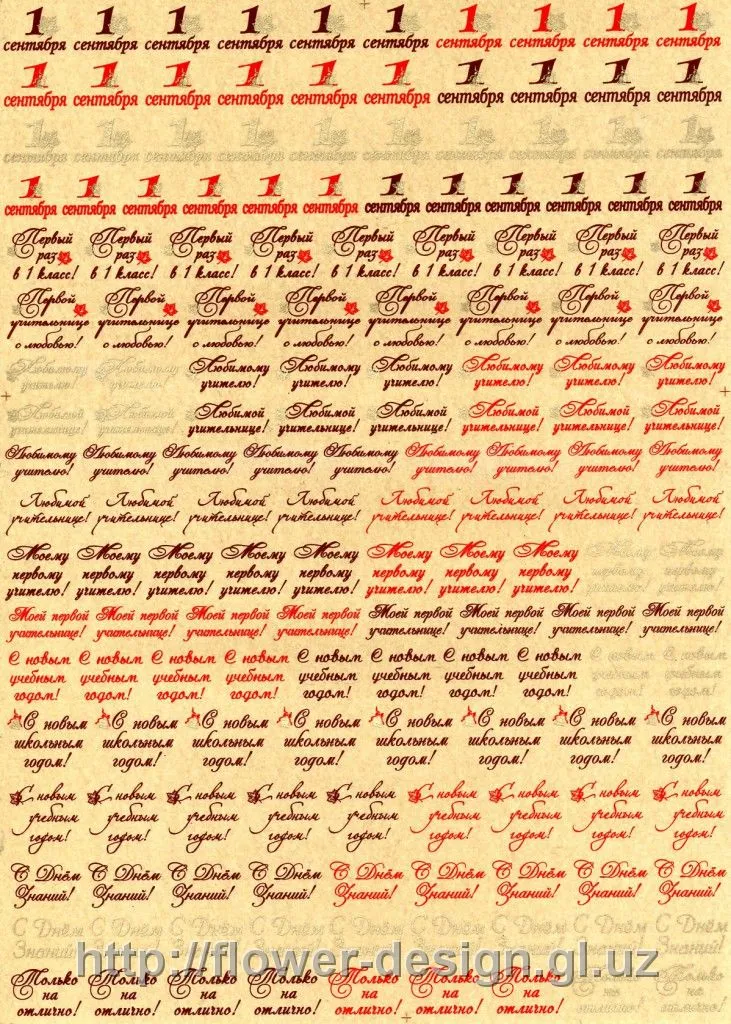 1 1 1 1 1 1 1 1 1 1
сентября сентября сентября сентября сентября сентября сентября сентября сентября сентября
1 1 1 1 1 1 1 1 1 1
сентября сентября сентября сентября сентября сентября сентября сентября сентября сентября
1 1 1 1 1 1 1 1 1 1
сентября сентября сентября сентября сентября сентября сентября сентября сентября сентября
1 1 1 1 1 1 1 1 1 1 1 1
сентября сентября сентября сентября сентября сентября сентября сентября сентября сентября сентября сентября
Первый Первый Первый Первый Первый Первый Первый Первый Первый
раз раз раз раз раз раз раз раз раз
в 1 класс! в 1 класс! в 1 класс! в 1 класс! в 1 класс! в 1 класс! в 1 класс! в 1 класс! в 1 класс!
Первой Первой Первой Первой Первой Первой Первой Первой
учительнице учительнице учительнице учительнице учительнице учительнице учительнице учительнице
с любовью! с любовью! с любовью! с любовью! с любовью! с любовью! с любовью! с любовью!
Любимому Любимому Любимому Любимому Любимому Любимому Любимому Любимому
учителю! учителю! учителю! учителю! учителю! учителю! учителю! учителю!
Любимой Любимой Любимой Любимой Любимой Любимой Любимой Любимой
учительнице! учительнице! учительнице! учительнице! учительнице! учительнице! учительнице! учительнице!
Любимому Любимому Любимому Любимому Любимому Любимому Любимому Любимому Любимому
учителю! учителю! учителю! учителю! учителю! учителю! учителю! учителю! учителю!
Любимой Любимой Любимой Любимой Любимой Любимой Любимой Любимой
учительнице! учительнице! учительнице! учительнице! учительнице! учительнице! учительнице! учительнице!
Моему Моему Моему Моему Моему Моему Моему Моему Моему Моему
первому первому первому первому первому первому первому первому первому первому
учителю! учителю! учителю! учителю! учителю! учителю! учителю! учителю! учителю! учителю!
Моей первой Моей первой Моей первой Моей первой Моей первой Моей первой Моей первой Моей первой
учительнице! учительнице! учительнице! учительнице! учительнице! учительнице! учительнице! учительнице!
С новым С новым С новым С новым С новым С новым С новым С новым С новым С новым
учебным учебным учебным учебным учебным учебным учебным учебным учебным учебным
годом! годом! годом! годом! годом! годом! годом! годом! годом! годом!
С новым С новым С новым С новым С новым С новым С новым С новым
школьным школьным школьным школьным школьным школьным школьным школьным
годом! годом! годом! годом! годом! годом! годом! годом!
С новым С новым С новым С новым С новым С новым С новым С новым С новым
учебным учебным учебным учебным учебным учебным учебным учебным учебным
годом! годом! годом! годом! годом! годом! годом! годом! годом!
С Днём С Днём С Днём С Днём С Днём С Днём С Днём С Днём С Днём
Знаний! Знаний! Знаний! Знаний! Знаний! Знаний! Знаний! Знаний! Знаний!
С Днём С Днём С Днём С Днём С Днём С Днём С Днём С Днём С Днём
Знаний! Знаний!
http://flower-design.gl.uz
Только Только Только Только Только Только Только Только Только
на на на на на на на на на
отлично! отлично! отлично! отлично! отлично! отлично! отлично! отлично! отлично!